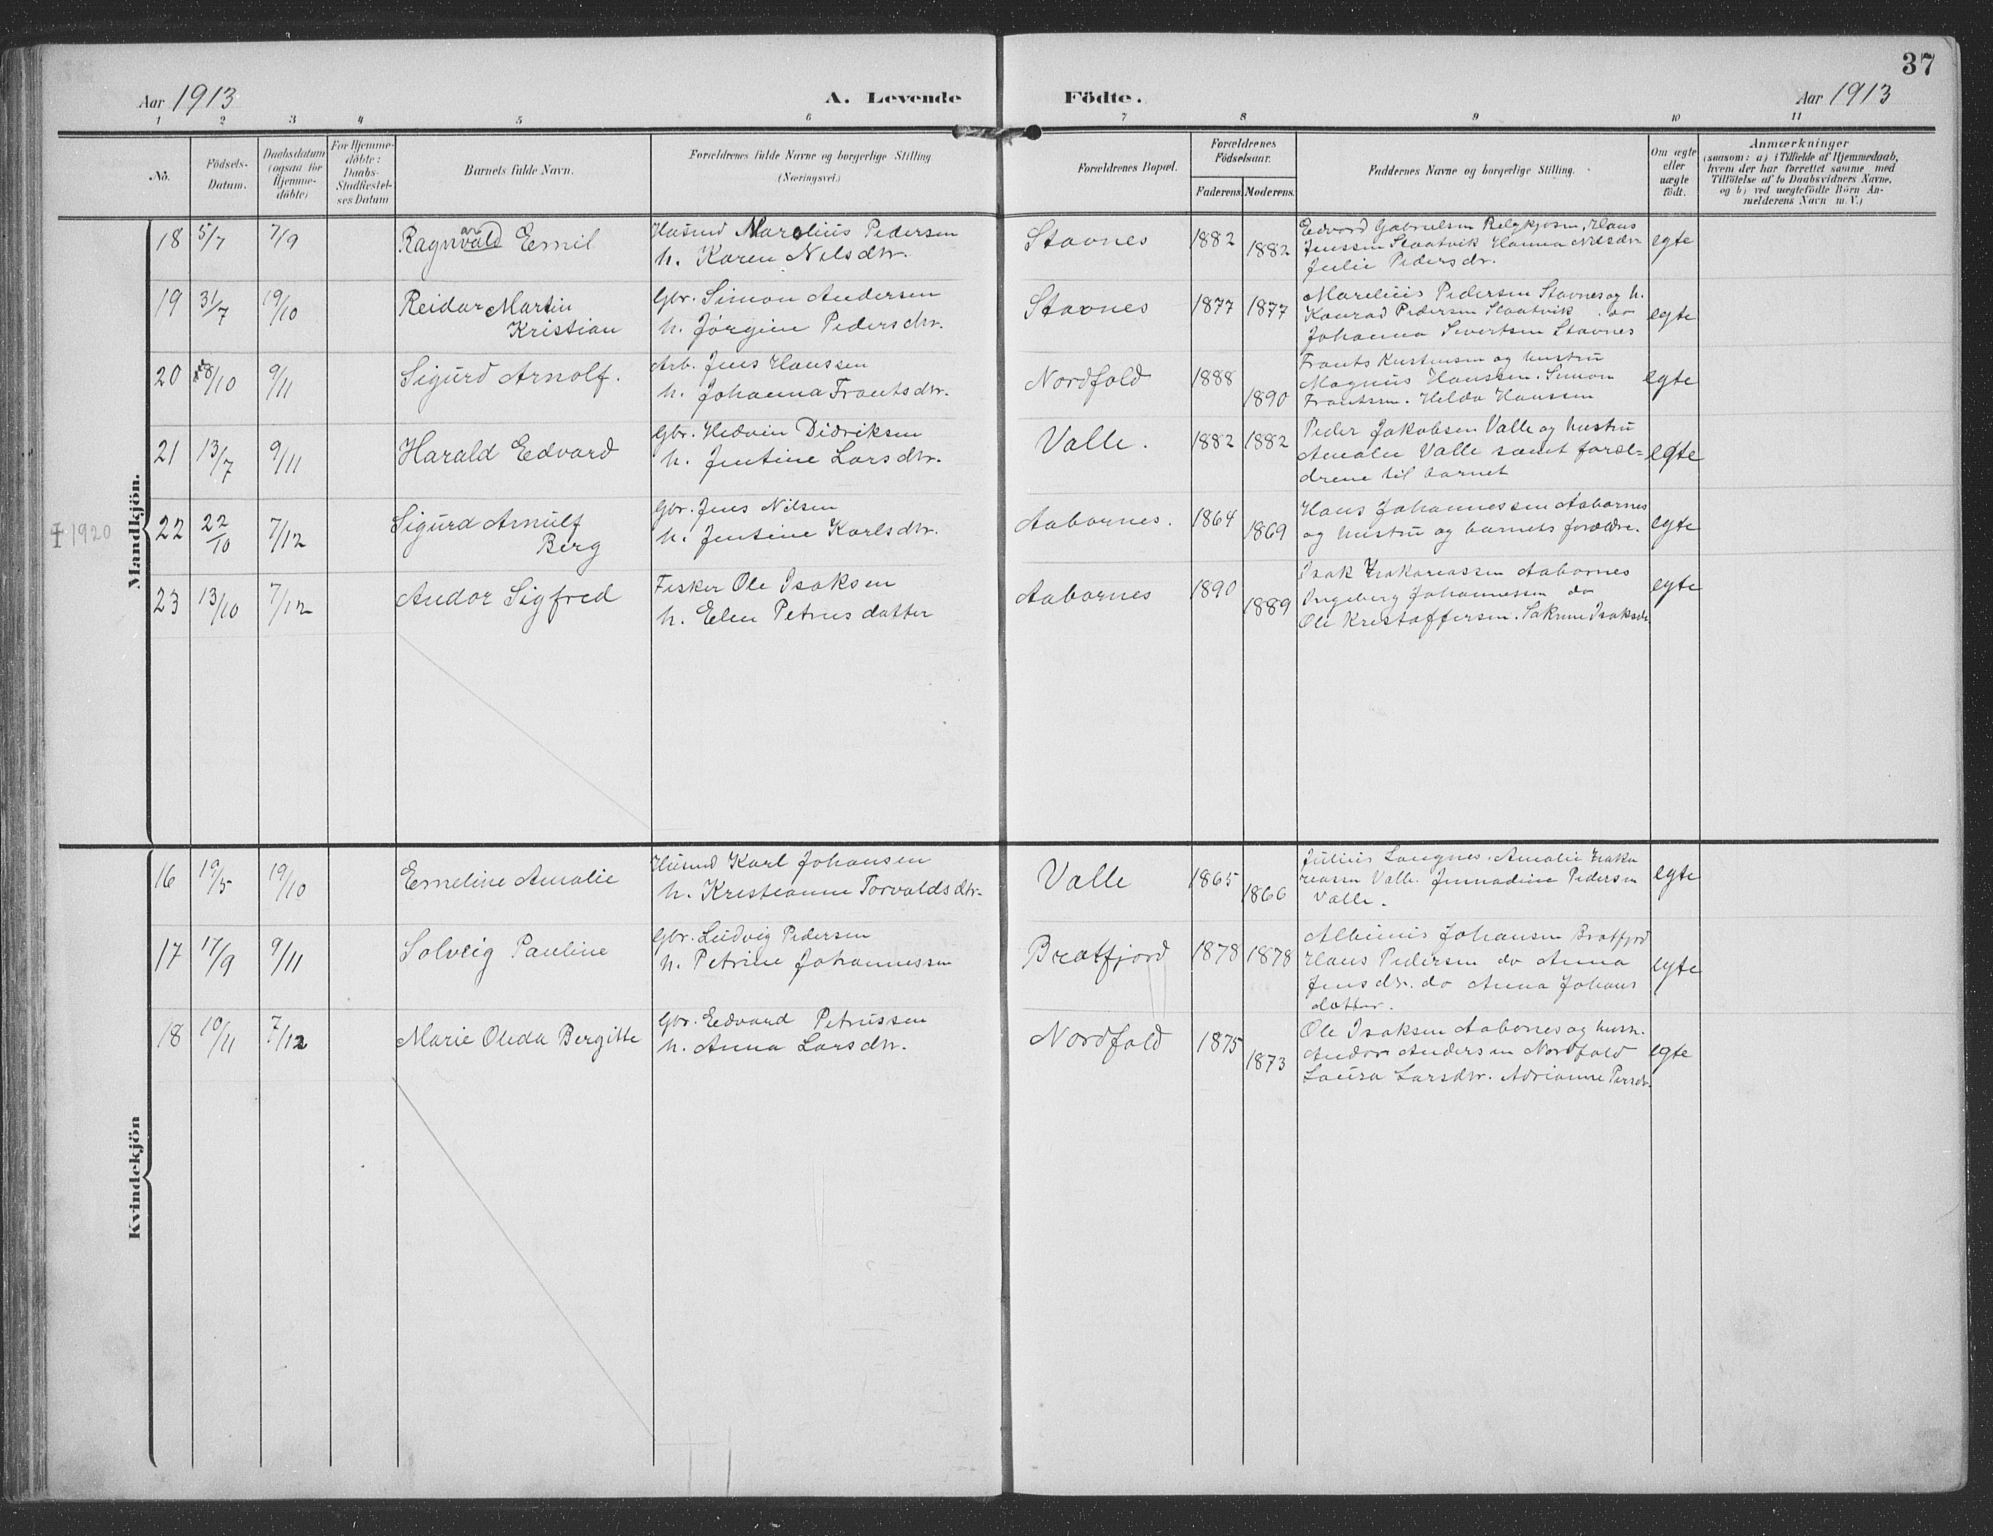 37
Aar 1913
A. Levende Födte.
Aar 1913
1 2 3 4 5 6 7 8 9 10 11
No.
Födsels-
Datum.
Daabsdatum
(ogsaa for
Hjemme-
döbte)
For Hjemme-
döbte:
Daabs-
Stadfæstel-
ses Datum
Barnets fulde Navn.
Forældrenes fulde Navne og borgerlige Stilling.
(Næringsvei.)
Forældrenes Bopæl.
Forældrenes
Födselsaar.
Faderens Moderens.
Faddernes Navne og borgerlige Stilling.
Om ægte
eller
uægte
födt.
Anmærkninger
(saasom: a) i Tilfælde af Hjemmedaab,
hvem der har forrettet samme med
Tilföielse af to Daabsvidners Navne,
og b) ved uægtefödte Börn An-
melderens Navn m. V.)
Mandkjön.
18 5/7 7/9 Ragnvald Emil
an
Husmd Marelius Pedersen
h. Karen Nilsdtr.
Stavnes 1882 1882
Edvard Gabrielsen Relgkjosen, Hans
Jenssen Slaatvik Hanna Nilsdtr
Julie Pedersdr.
egte
19 31/7 19/10 Reidar Martin
Kristian
Gbr. Simon Andersen
h. Jørgine Pedersdtr.
Stavnes 1877 1877
Marelius Pedersen Stavnes og h.
Konrad Pedersen Slaatvik do
Johanna Sivertsen Stavnes
egte
20 8/10 9/11 Sigurd Arnolf.
Arb. Jens Hanssen
h. Johanna Frantsdtr.
Nordfold 1888 1890
Frants Kristensen og hustru
Magnus Hanssen. Simon
Frantsen. Hilda Hanssen
egte
21 13/7 9/11 Harald Edvard
Gbr. Hedvin Didriksen
h. Jentine Larsdtr.
Valle. 1882 1882
Peder Jakobsen Valle og hustru
Amalie Valle samt foræl-
drene til barnet
egte
‡ 1920
22 22/10 7/12 Sigurd Arnulf
Berg
Gbr. Jens Nilsen
h. Jentine Karlsdtr.
Aabornes. 1864 1869
Hans Johannessen Aabornes
og hustru og barnets forældre.
egte
23 13/10 7/12 Andor Sigfred
Fisker Ole Isaksen
h. Elen Petrusdatter
Aabornes 1890 1889
Isak Zakariassen Aabornes
Ingeberg Johannessen do
Ole Kristoffersen. Sakrine Isaksdr
egte
Kvindekjön
16 19/5 19/10 Emeline Amalie
Husmd Karl Johansen
h. Kristianne Torvaldsdtr.
Valle 1865 1866
Julius Langnes. Amalie Zaka
riassen Valle. Jensadine Pedersen
Valle.
egte
17 17/9 9/11 Solveig Pauline
Gbr. Ludvig Pedersen
h. Petrine Johannessen
Bratfjord 1878 1878
Albinus Johansen Bratfjord
Hans Pedersen do Anna
Jensdr. do Anna Johans
datter.
egte
18 19/11 7/12 Marie Oleda Bergitte
Gbr. Edvard Petrussen
h. Anna Larsdtr.
Nordfold 1875 1873
Ole Isaksen Aabornes og hustr.
Andor Andersen Nordfold
Laura Larsdtr. Adrianne Persdr.
egte